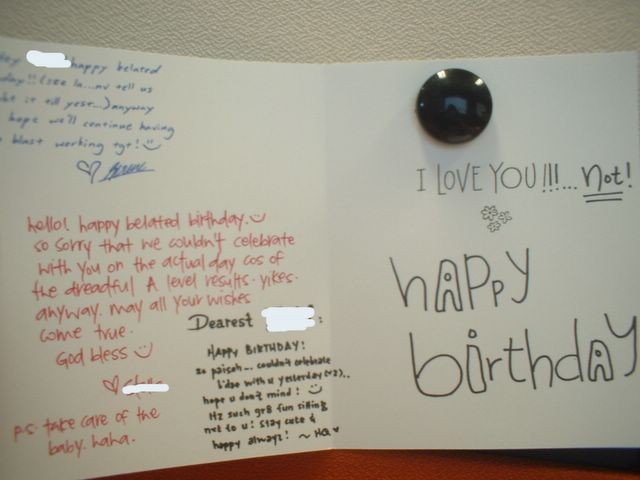 happy belated
day!! (see la...nv tell us
it till yest...) anyway
hope we'll continue having
blast working tgt!
hello! happy belated birthday.
so sorry that we couldn't celebrate
with you on the actual day cos of
the dreadful A level results. yikes.
anyway. may all your wishes
come true.
God bless
p.s. take care of the
baby. haha.
Dearest :
HAPPY BIRTHDAY!
so paiseh... couldn't celebrate
b'dae with u yesterday
hope u don't mind!
Hz such gr8 fun sitting
nxt to u! Stay cute &
happy always! ~ HQ
I LOVE YOU!!!... Not!
hAPPY
birthdAY